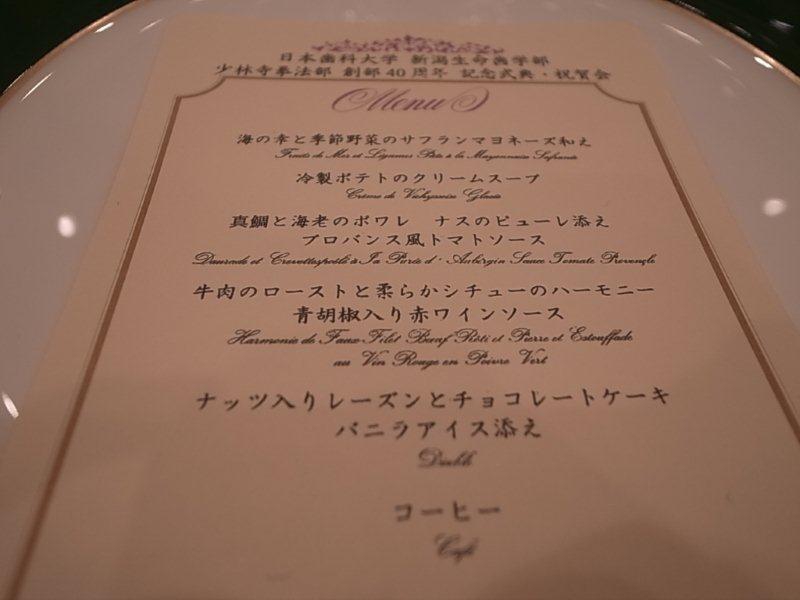 日本歯科大学 新潟生命歯学部
少林寺拳法部 創部40周年 記念式典・祝賀会
Menu
海の幸と季節野菜のサフランマヨネーズ和え
Fruits de Mer et Légumes Pâte à la Mayonnaise Safranée
冷製ポテトのクリームスープ
Crème de Vichyssoise Glacée
真鯛と海老のポワレ ナスのピューレ添え
プロバンス風トマトソース
Daurade et Crevettespoêlé à La Purée d' Aubergin Sauce Tomate Provençle
牛肉のローストと柔らかシチューのハーモニー
青胡椒入り赤ワインソース
Harmonie de Faux-Filet Bœuf Rôti et Pierre et Estouffade
au Vin Rouge en Poivre Vert
ナッツ入りレーズンとチョコレートケーキ
バニラアイス添え
コーヒー
Café